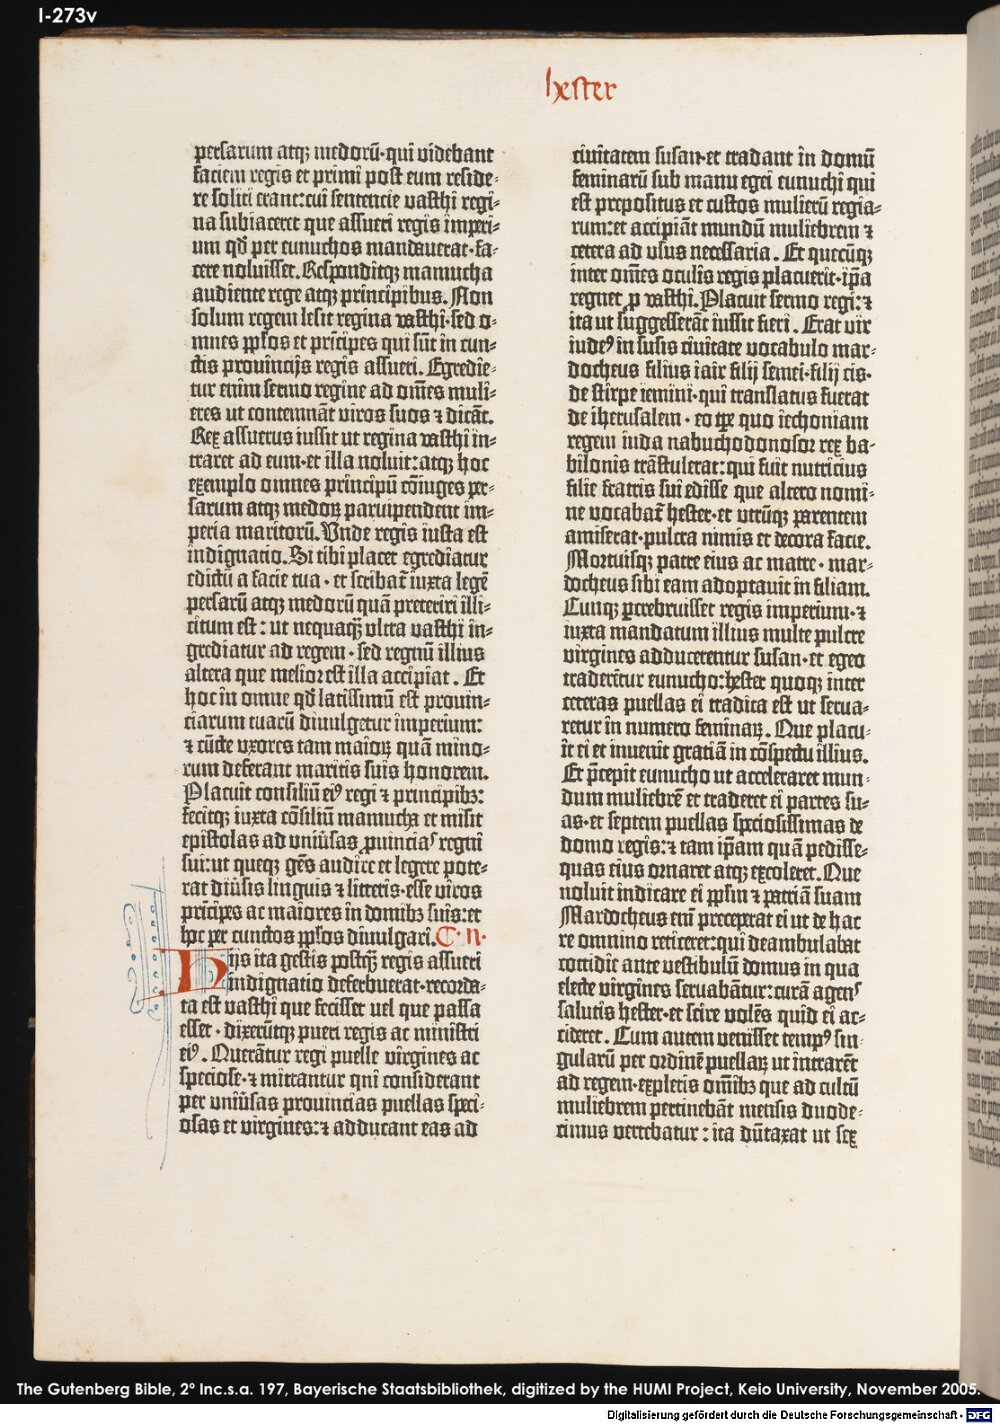 I-273v
hester
persarum atq₃ medorū·qui videbant
faciem regis et primi post eum reside-
re soliti erant:cui sentencie vasthi regi-
na subiaceret que assueri regis imperi-
um qđ per eunuchos mandauerat·fa-
cere noluisset. Respōditq₃ mamucha
audiente rege atq₃ principibus. Non
solum regem lesit regina vasthi·sed o-
mnes pp̄los et prīcipes qui sūt in cun-
ctis prouincijs regis assueri. Egredie-
tur enim sermo regine ad om̄es muli-
eres ut contemnāt viros suos ⁊ dicāt.
Rex assuerus iussit ut regina vasthi in-
traret ad eum·et illa noluit:atq₃ hoc
exemplo omnes principū cōiuges per-
sarum atq₃ medoꝝ paruipendent im-
peria maritorū. Vnde regis iusta est
indignatio. Si tibi placet egrediatur
edictū a facie tua · et scribat̄ iuxta legē
persarū atq₃ medorū quā preteriri illi-
citum est : ut nequaq̄₃ vltra vasthi in-
grediatur ad regem · sed regnū illius
altera que melior est illa accipiat . Et
hoc in omne qđ latissimū est prouin-
ciarum tuarū diuulgetur imperium:
⁊ cūcte vxores tam maioꝝ quā mino-
rum deferant maritis suis honorem.
Placuit consiliū eiꝰ regi ⁊ principib₃:
fecitq₃ iuxta cōsiliū mamucha et misit
epistolas ad vniūsas ꝓuinciaˢ regni
sui:ut queq₃ gēs audire et legere pote-
rat diūsis linguis ⁊ litteris·esse viros
prīcipes ac maiores in domib₃ suis:et
hoc per cunctos pp̄los diuulgari. C·II·
Hijs ita gestis postq̄₃ regis assueri
indignatio deferbuerat·recorda-
ta est vasthi que fecisset uel que passa
esset · dixerūtq₃ pueri regis ac ministri
eiꝰ. Querātur regi puelle virgines ac
speciose·⁊ mittantur qui considerant
per vniūsas prouincias puellas speci-
osas et virgines:⁊ adducant eas ad
ciuitatem susan·et tradant in domū
feminarū sub manu egei eunuchi qui
est prepositus et custos mulierū regia-
rum:et accipiāt mundū muliebrem ⁊
cetera ad vsus necessaria. Et quecūq₃
inter om̄es oculis regis placuerit·ip̄a
regnet ꝓ vasthi. Placuit sermo regi:⁊
ita ut suggesserāt iussit fieri . Erat vir
iudeꝰ in susis ciuitate vocabulo mar-
docheus filius iair filij semei·filij cis·
de stirpe iemini·qui translatus fuerat
de iherusalem · eo tp̄e quo iechoniam
regem iuda nabuchodonosor rex ba-
bilonis trāstulerat:qui fuit nutricius
filie fratris sui edisse que altero nomi-
ne vocabat̄ hester·et vtrūq₃ parentem
amiserat·pulcra nimis et decora facie.
Mortuisq₃ patre eius ac matre · mar-
docheus sibi eam adoptauit in filiam.
Cunq₃ ꝑcrebruisset regis imperium·⁊
iuxta mandatum illius multe pulcre
virgines adducerentur susan·et egeo
traderētur eunucho:hester quoq₃ inter
ceteras puellas ei tradita est ut serua-
retur in numero feminaꝝ. Que placu-
it ei et inuenit gratiā in cōspectu illius.
Et p̄cepit eunucho ut acceleraret mun-
dum muliebrē et traderet ei partes su-
as·et septem puellas speciosissimas de
domo regis:⁊ tam ip̄am quā pedisse-
quas eius ornaret atq₃ excoleret. Que
noluit indicare ei pp̄lm ⁊ patriā suam
Mardocheus eni preceperat ei ut de hac
re omnino reticeret:qui deambulabat
cottidie ante vestibulū domus in qua
electe virgines seruabātur:curā agenˢ
salutis hester·et scire volēs quid ei ac-
cideret. Cum autem venisset tempꝰ sin-
gularū per ordinē puellaꝝ ut intrarēt
ad regem·expletis om̄ib₃ que ad cultū
muliebrem pertinebāt mensis duode-
cimus vertebatur : ita dūtaxat ut sex
The Gutenberg Bible, 2° Inc.s.a. 197, Bayerische Staatsbibliothek, digitized by the HUMI Project, Keio University, November 2005.
Digitalisierung gefördert durch die Deutsche Forschungsgemeinschaft - DFG